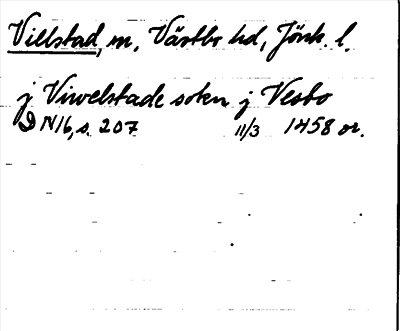 Villstad, sn, Västbo hd, Jönk. l.
j Viwelstade sokn j Vesbo
D N16, s. 207 11/3 1458 or.